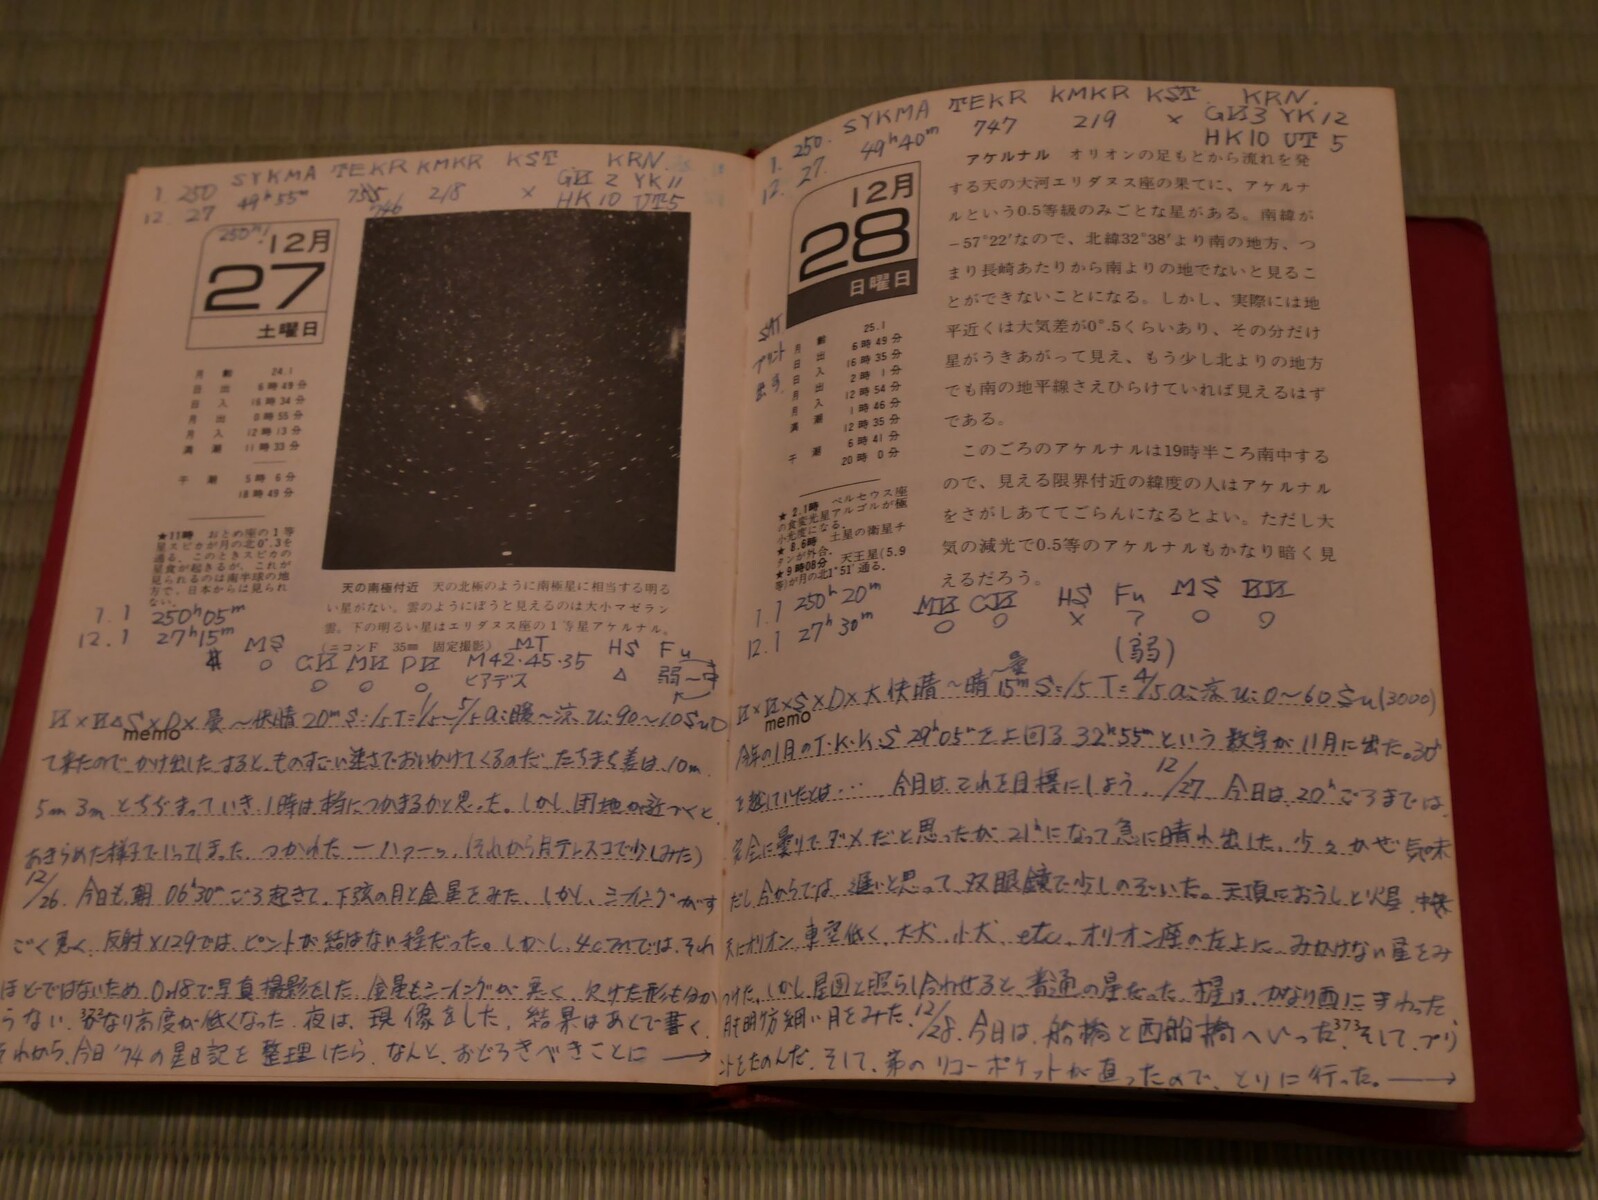 SYKMA TEKR KMKR KST KRN.
1. 250 49h55m 746 218 × 2 YK11
12. 27 HK10 UT5
250h!
12月
27
土曜日
月齢 24.1
日出 6時49分
日入 16時34分
月出 0時55分
月入 12時13分
満潮 11時33分
干潮 5時6分
18時49分
★11時 おとめ座の1等
星スピカが月の北0°.3を
通る。このときスピカの
星食が起きるが、これが
見られるのは南半球の地
方で、日本からは見られ
ない。
天の南極付近 天の北極のように南極星に相当する明る
い星がない。雲のようにぼうと見えるのは大小マゼラン
雲。下の明るい星はエリダヌス座の1等星アケルナル。
(ニコンF 35㎜ 固定撮影)
1.1 250h05m
12.1 27h15m
MS MT HS Fu
○ M42・45・35 △ 弱〜中
○ ○ ○ ヒアデス
曇〜快晴 20m S=1/5 T=1/5〜5/5 a:暖〜涼 u:90〜10
memo
て来たのでかけ出した。すると、ものすごい速さでおいかけてくるのだ。たちまち差は、10m、
5m 3m とちぢまっていき、1時は本当につかまるかと思った。しかし、団地が近づくと、
あきらめた様子でいってしまった。つかれたーハァーッ。(それから月テレスコで少しみた)
12/26. 今日も朝 06h30mごろ起きて、下弦の月と金星をみた。しかし、シーイングがす
ごく悪く、反射×129では、ピントが結ばない程だった。しかし、4cmでは、それ
ほどではないため 写真撮影をした。金星もシーイングが悪く、欠けた形も分か
らない。かなり高度が低くなった。夜は、現像をした。結果はあとで書く。
それから、今日'74の星日記を整理したら、なんと、おどろきべきことに →
SYKMA TEKR KMKR KST KRN.
1. 250. 49h40m 747 219 × 3 YK12
12. 27. HK10 UT5
12月
28
日曜日
プリント
出す
月齢 25.1
日出 6時49分
日入 16時35分
月出 2時1分
月入 12時54分
満潮 1時46分
12時35分
干潮 6時41分
20時0分
★2.1時 ペルセウス座
の食変光星アルゴルが極
小光度になる。
★8.6時 土星の衛星チ
タンが外合。
★9時08分 天王星(5.9
等)が月の北1°51′通る。
アケルナル オリオンの足もとから流れを発
する天の大河エリダヌス座の果てに、アケルナ
ルという0.5等級のみごとな星がある。南緯が
−57°22′なので、北緯32°38′より南の地方、つ
まり長崎あたりから南よりの地でないと見るこ
とができないことになる。しかし、実際には地
平近くは大気差が0°.5くらいあり、その分だけ
星がうきあがって見え、もう少し北よりの地方
でも南の地平線さえひらけていれば見えるはず
である。
このごろのアケルナルは19時半ころ南中する
ので、見える限界付近の緯度の人はアケルナル
をさがしあててごらんになるとよい。ただし大
気の減光で0.5等のアケルナルもかなり暗く見
えるだろう。
1.1 250h20m
12.1 27h30m
HS Fu MS
○ ○ × ? ○ ○
(弱)
大快晴〜晴〜曇 15m S=1/5 T=4/5 a:涼 u:0〜60 Su(3000)
memo
今年の1月のT・K・K・S 29h05mを上回る 32h55mという数字が11月に出た。30h
を越していたとは… 今月は、それを目標にしよう。12/27 今日は20hごろまでは、
完全に曇りでダメだと思ったが、21hになって急に晴れ出した。少々かぜ気味
だし今からでは、遅いと思って、双眼鏡で少しのぞいた。天頂におうしと火星、
にオリオン、東空低く、大犬、小犬、etc. オリオン座の左上に、みかけない星をみ
つけた。しかし星図と照らし合わせると、普通の星だった。木星は、かなり西にまわった。
明け方細い月をみた。12/28. 今日は、船橋と西船橋へいった。そして、プリ
ントをたのんだ。そして、弟のリコーポケットが直ったので、とりに行った。→